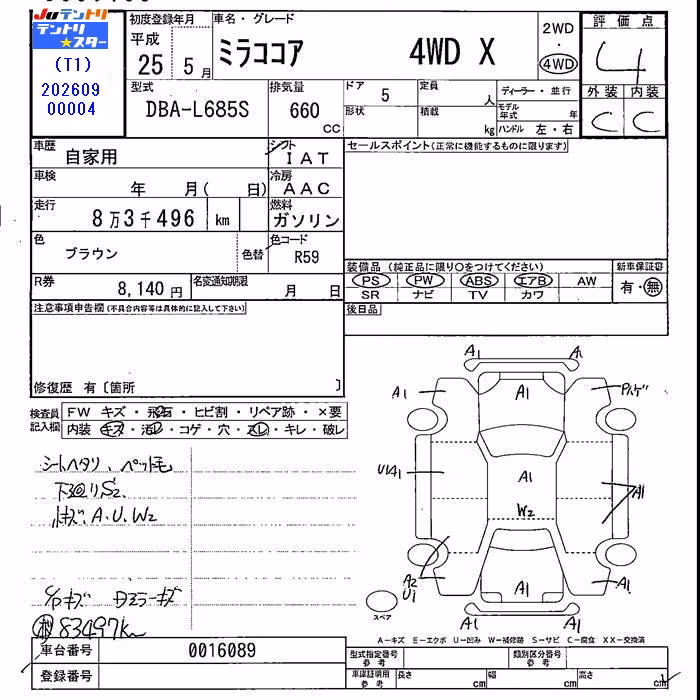 Juテントリ
テントリ
★スター
(T1)
202609
00004
初度登録年月
平成
25 5月
車名・グレード
ミラココア 4WD X
2WD
・
4WD
評価点
4
外装 内装
C C
型式
DBA-L685S
排気量
660
CC
ドア 5
形状
定員 人
積載 kg
ディーラー・並行
モデル年式 年
ハンドル 左・右
車歴
自家用
シフト
IAT
車検
年 月( 日)
冷房
AAC
走行
8万3千496 km
燃料
ガソリン
色
ブラウン
色替
色コード
R59
R券
8,140 円
名変通知期限
月 日
セールスポイント(正常に機能するものに限ります)
装備品 (純正品に限り○をつけてください)
PS PW ABS エアB AW
SR ナビ TV カワ
新車保証書
有・無
後日品
注意事項申告欄(不具合内容等は具体的に記入して下さい)
修復歴 有〔箇所 〕
検査員
記入欄
FW キズ・飛石・ヒビ割・リペア跡・×要
内装 キズ・汚レ・コゲ・穴・スレ・キレ・破レ
シートヘタリ、ペット毛
下廻りS2
小キズ、A.U.W2
キズ Dミラーキズ
83497km
A1 A1
A1 A1
U1A1 A1
A1
W2
A2
U1
A1 A1
スペア
A-キズ E-エクボ U-凹み W-補修跡 S-サビ C-腐食 XX-交換済
車台番号 0016089
登録番号
型式指定番号
参考
類別区分番号
参考
車庫証明用
参考
長さ cm 幅 cm 高さ cm